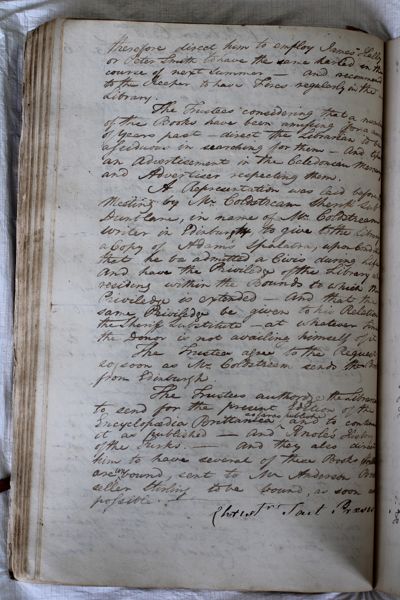 therefore direct him to employ James
or Peter Smith to have the same in the
course of next Summer — and recommend
to the Keeper to have Fires regularly in the
Library.
The Trustees considering that a
of the Books have been amissing for a
of years past — direct the Librarian to be
assiduous in searching for them — And
an Advertisement in the Caledonian Mercury
and Advertiser respecting them.
A Representation was laid before
Meeting by Mr. Coldstream Sheriff
Dunblane, in name of Mr. Coldstream
Writer in Edinburgh to give to the Library
a Copy of Adam's Spalatra, upon
that he be admitted a Civis during life
And have the Priviledge of the Library
residing within the Bounds to which the
Priviledge is extended — And that the
same Priviledge be given to his Relation
the Sheriff Substitute — at whatever time
the Donor is not availing himself of it
The Trustees agree to the Request
so soon as Mr. Coldstream sends the
from Edinburgh
The Trustees authorize the Librarian
to send for the present Edition of the
Encyclopædia Brittanica as far as published, and to continue
it as published — and Knoles History
of the Turks — And they also
him to have several of these Books
are unbound, sent to Mr. Anderson
seller Stirling to be bound, as soon as
possible.
Tait Preses